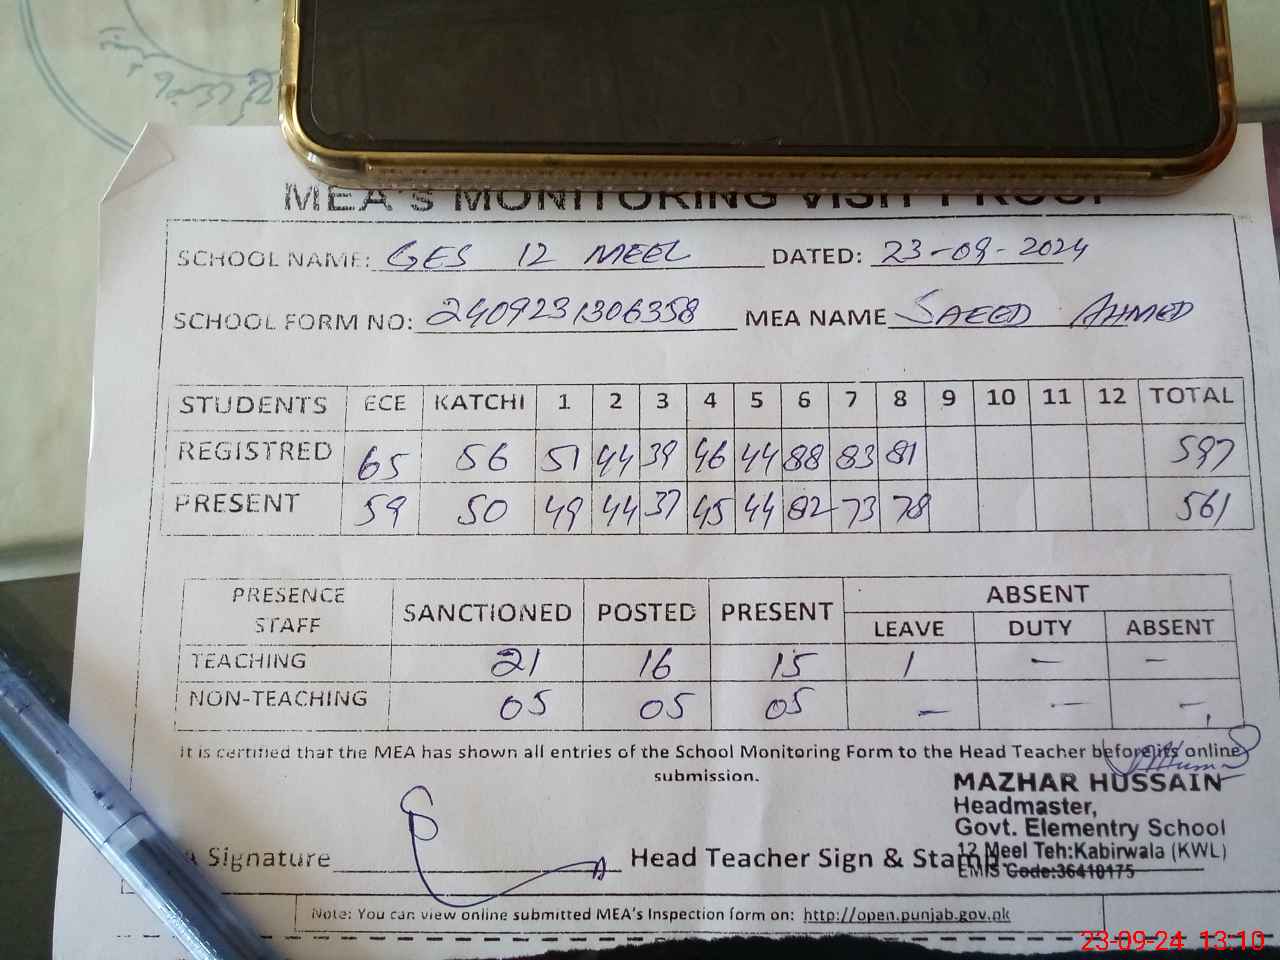 MEA's MONITORING VISIT PROOF
SCHOOL NAME: GES 12 MEEL DATED: 23-09-2024
SCHOOL FORM NO: 2409231306358 MEA NAME SAEED AHMED
STUDENTS ECE KATCHI 1 2 3 4 5 6 7 8 9 10 11 12 TOTAL
REGISTRED 65 56 51 44 39 46 44 88 83 81 597
PRESENT 59 50 49 44 37 45 44 82 73 78 561
PRESENCE STAFF SANCTIONED POSTED PRESENT ABSENT
LEAVE DUTY ABSENT
TEACHING 21 16 15 1 — —
NON-TEACHING 05 05 05 — — —
It is certified that the MEA has shown all entries of the School Monitoring Form to the Head Teacher before its online
submission.
MAZHAR HUSSAIN
Headmaster,
Govt. Elementry School
12 Meel Teh:Kabirwala (KWL)
EMIS Code:36410175
Signature Head Teacher Sign & Stamp
Note: You can view online submitted MEA's Inspection form on: http://open.punjab.gov.pk
23-09-24 13:10